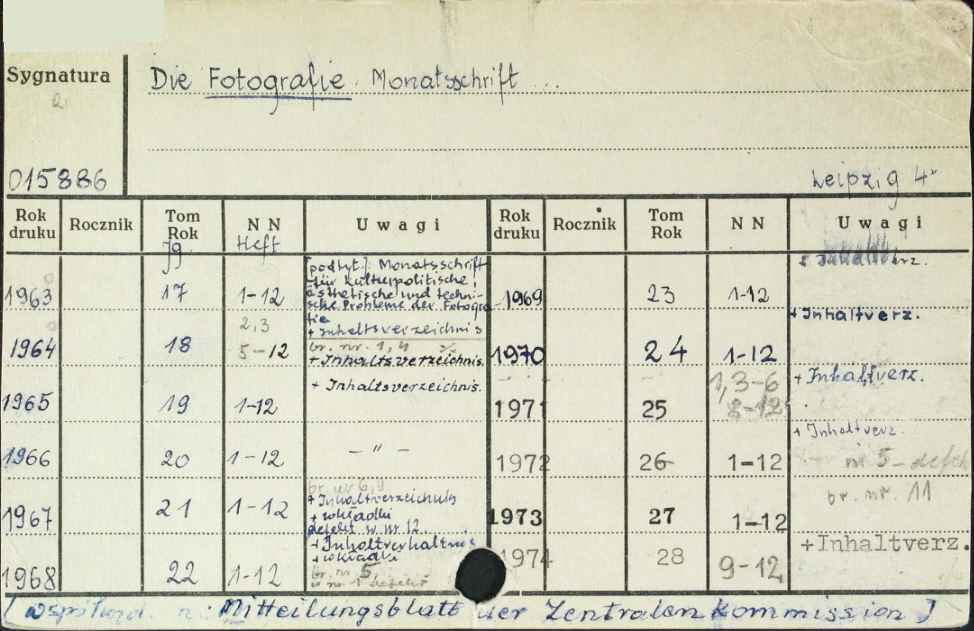 Sygnatura
Die Fotografie. Monatsschrift ...
015886
Leipzig 4°
Rok druku Rocznik Tom Rok N N U w a g i Rok druku Rocznik Tom Rok N N U w a g i
Jg Heft
1963 17 1-12
[podtyt.]: Monatsschrift
für kulturpolitische,
ästhetische und techni-
sche Probleme der Fotogra-
fie
+ Inhaltsverzeichnis
1964 18 2,3
5-12
br. nr. 1, 4
+ Inhaltsverzeichnis.
1965 19 1-12 + Inhaltsverzeichnis.
1966 20 1-12 - " -
1967 21 1-12
br. nr 6,9
+ Inhaltverzeichnis
+ wkładki
defekt w nr 12.
1968 22 1-12
+ wkładki
br. nr 5
w nr 1 defekt
1969 23 1-12
1970 24 1-12 + Inhaltverz.
1971 25 1,3-6
8-12
+ Inhaltverz.
1972 26 1-12 + Inhaltverz.
nr 5 - defekt
1973 27 1-12 br. nr. 11
1974 28 9-12 +Inhaltverz.
Mitteilungsblatt der Zentralen Kommission ]